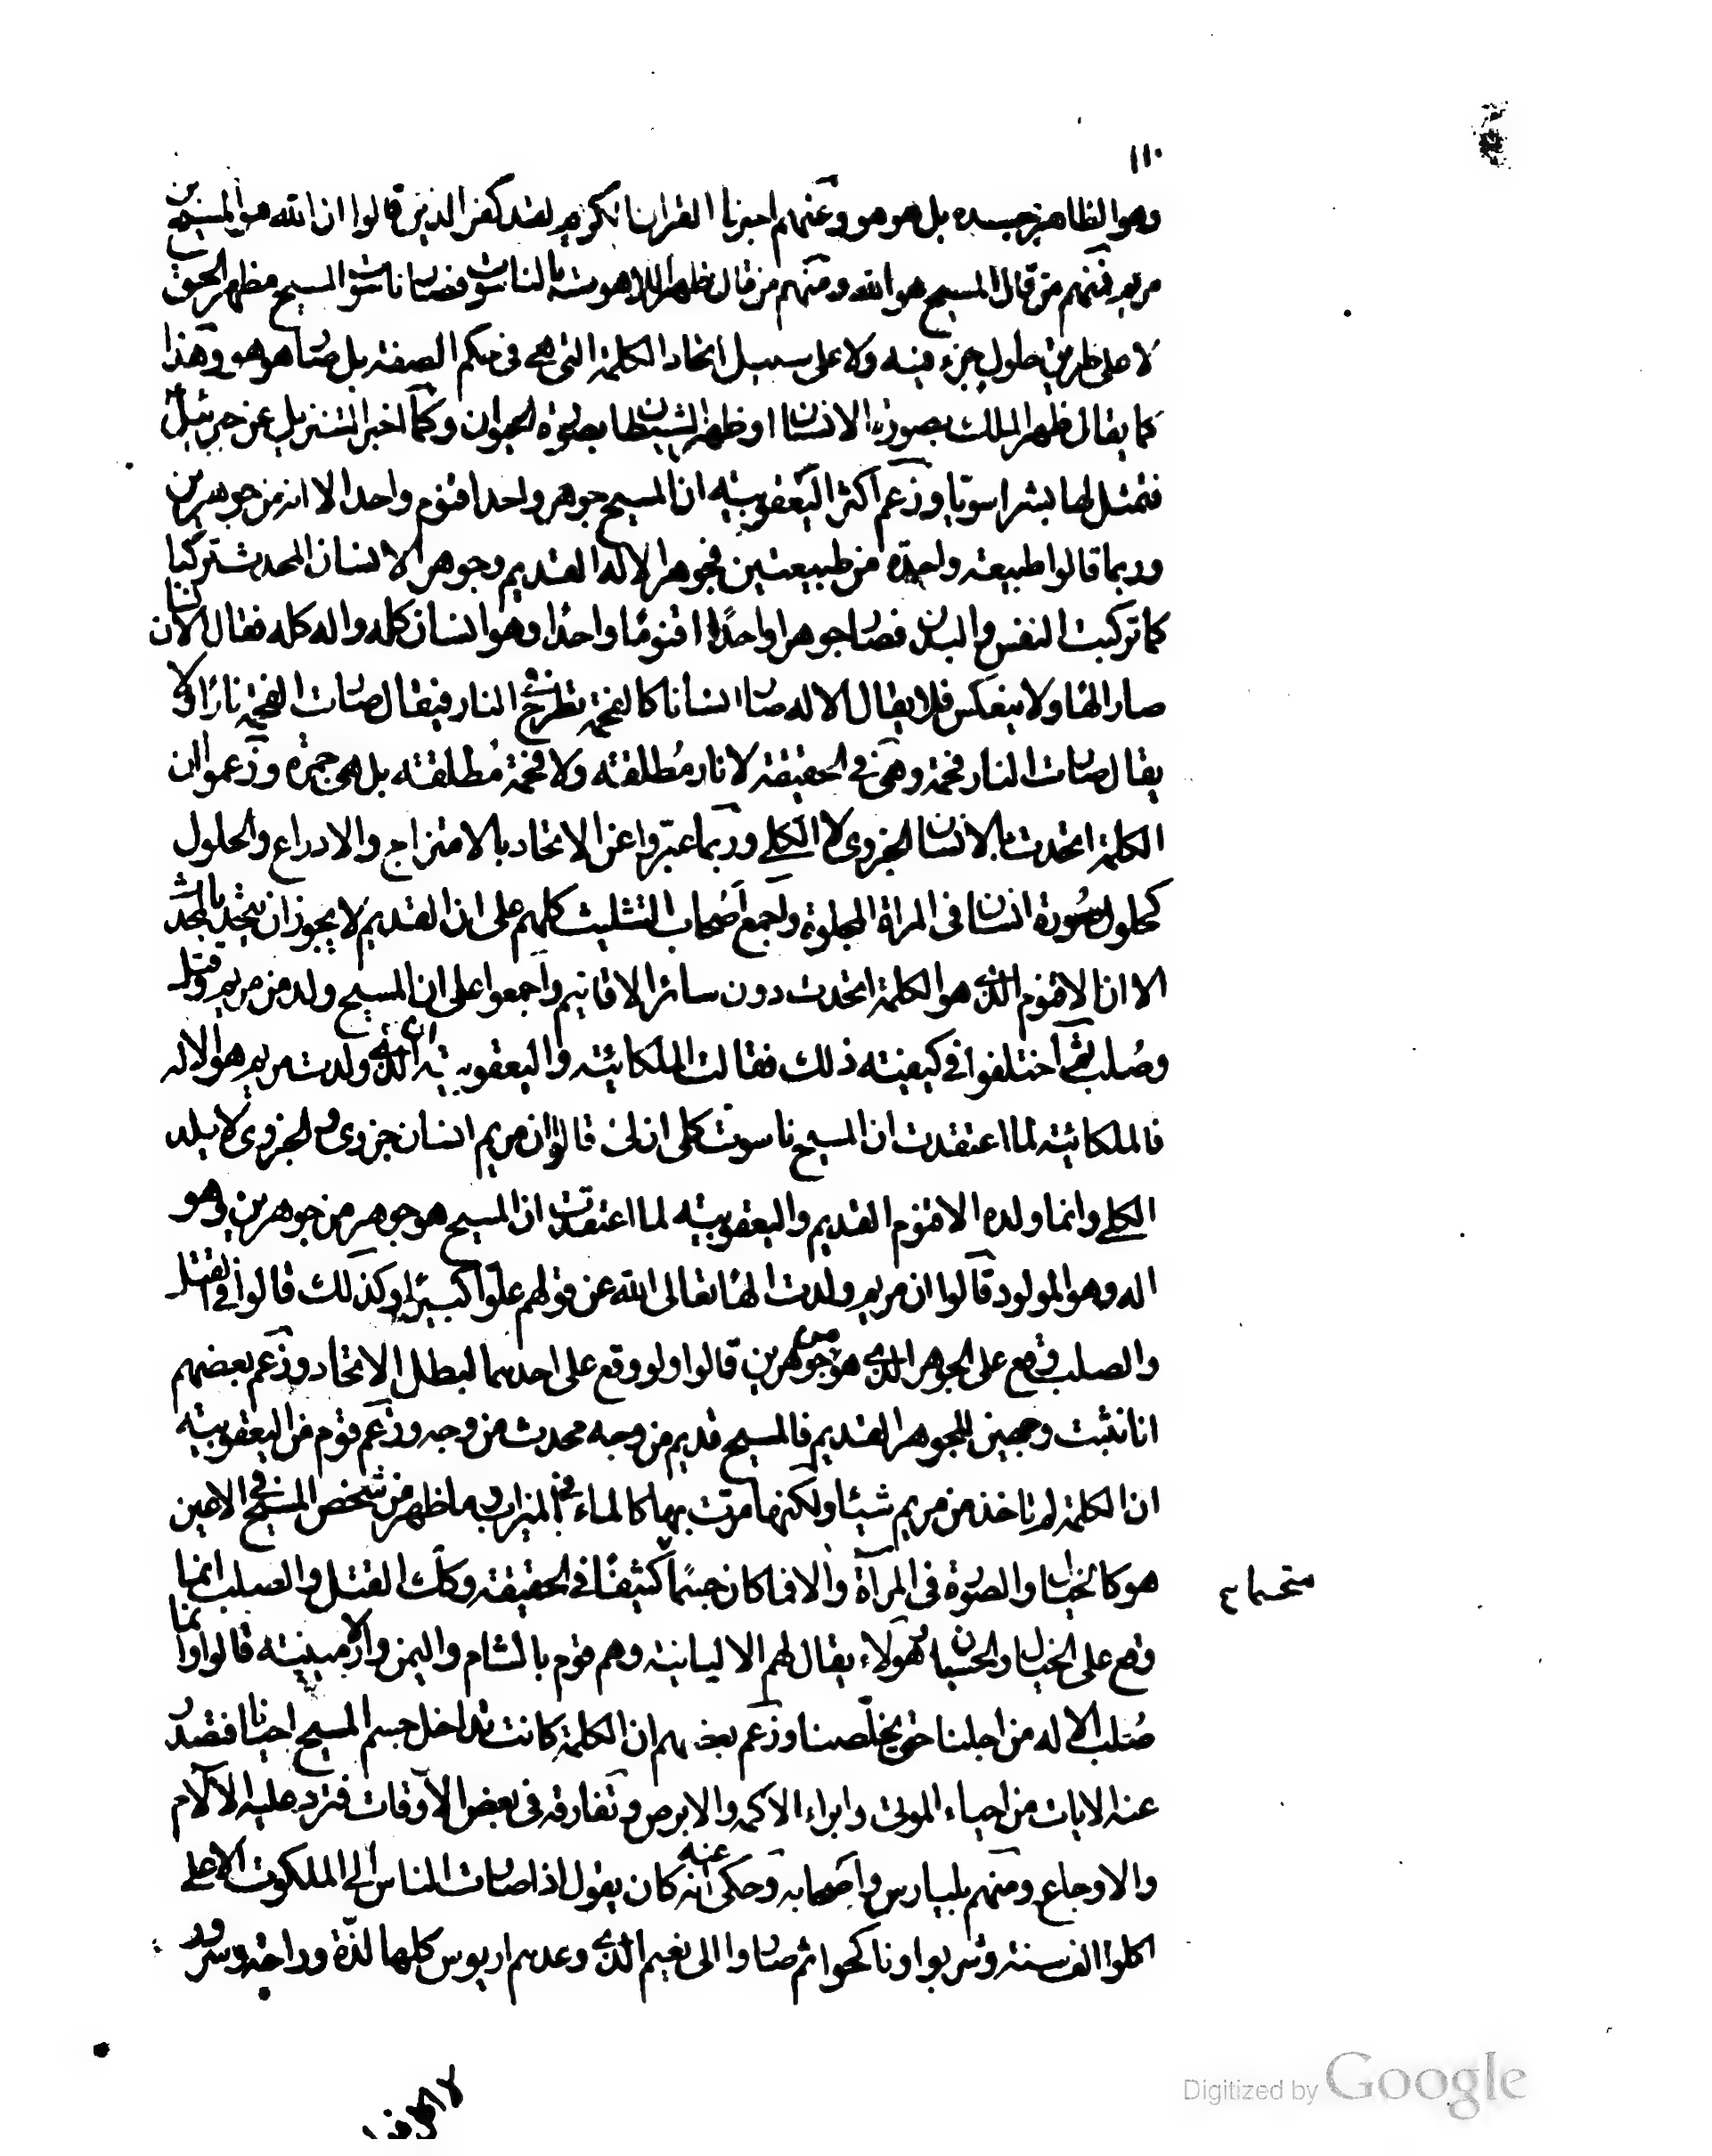 ١١٠
وهو الظاهر بجسده بل هو هو وعنهم اخبرنا القران الكريم لقد كفر الذين قالوا ان الله هو المسيح بن
مريم فمنهم من قال المسيح هو الله ومنهم من قال ظهر اللاهوت بالناسوت فصار ناسوت المسيح مظهر الحق
لا على طريق حلول جزء فيه ولا على سبيل اتحاد الكلمة التي هي في حكم الصفة بل صار هو هو وهذا
كما يقال ظهر الملك بصورة الانسان او ظهر الشيطان بصورة الحيوان وكما اخبر التنزيل عن جبرئيل
فتمثل لها بشرا سويا وزعم اكثر اليعقوبية ان المسيح جوهر واحد اقنوم واحد الا انه من جوهرين
وربما قالوا طبيعة واحدة من طبيعتين فجوهر الاله القديم وجوهر الانسان المحدث تركبا
كما تركبت النفس والبدن فصارا جوهرا واحدًا اقنومًا واحدًا وهو انسان كله واله كله فقال الانسان
صار الهًا ولا ينعكس فلا يقال الاله صار انسانا كالفحمة تطرح في النار فيقال صارت الفحمة نارًا ولا
يقال صارت النار فحمة وهي في الحقيقة لا نار مُطلقة ولا فحمة مُطلقة بل هي جمرة وزعموا ان
الكلمة اتحدت بالانسان الجزوى لا الكلي وربما عبّروا عن الاتحاد بالامتزاج والادراع والحلول
كحلول صُورة انسان في المراة المجلوة واجمع اصحاب التثليث كلهم على ان القديم لا يجوز ان يتحد بالمحدث
الا ان الاقنوم الذي هو الكلمة اتحدت دون سائر الاقانيم واجمعوا على ان المسيح ولد من مريم وقتل
وصُلب ثم اختلفوا في كيفية ذلك فقالت الملكائية واليعقوبية ان الذي ولدت مريم هو الاله
فالملكائية لما اعتقدت ان المسيح ناسوت كلي ازلي قالوا ان مريم انسان جزوى والجزوى لا يلد
الكلي وانما ولده الاقنوم القديم واليعقوبية لما اعتقدت ان المسيح هو جوهر من جوهرين وهو
اله وهو المولود قالوا ان مريم ولدت الهًا تعالى الله عن قولهم علوًا كبيرًا وكذلك قالوا في القتل
والصلب وقع على الجوهر الذي هو من جوهرين قالوا ولو وقع على احدهما لبطل الاتحاد وزعم بعضهم
انا نثبت وجهين للجوهر القديم فالمسيح قديم من وجه محدث من وجه وزعم قوم من اليعقوبية
ان الكلمة لم تاخذ من مريم شيئا ولكنها مرّت بها كالماء في الميزاب وما ظهر من شخص المسيح في الاعين
هو كالخيال والصورة في المرآة والا فما كان جسمًا كثيفًا في الحقيقة وكذلك القتل والصلب انما
وقع على الخيال والحسبان وهؤلاء يقال لهم الاليانية وهم قوم بالشام واليمن والارمينية قالوا وانما
صُلب الاله من اجلنا حتى يخلّصنا وزعم بعضهم ان الكلمة كانت تداخل جسم المسيح احيانا فتصدر
عنه الايات من احياء الموتى وابراء الاكمه والابرص وتفارقه في بعض الاوقات فترد عليه الآلام
والاوجاع ومنهم بليارس واصحابه وحكى عنه انه كان يقول اذا صارت الناس الى الملكوت الاعلى
اكلوا الف سنة وشربوا وناكحوا ثم صاروا الى نعيم الذي وعدهم اريوس كلها لذّة وراحة وسرور